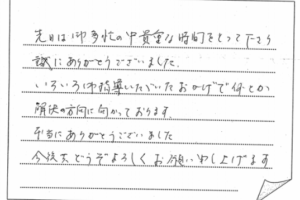 先日は御多忙の中貴重な時間をとって下さり
誠にありがとうございました。
いろいろ御指導いただいたおかげで何とか
解決の方向に向かっております。
本当にありがとうございました
今後共どうぞよろしくお願い申し上げます